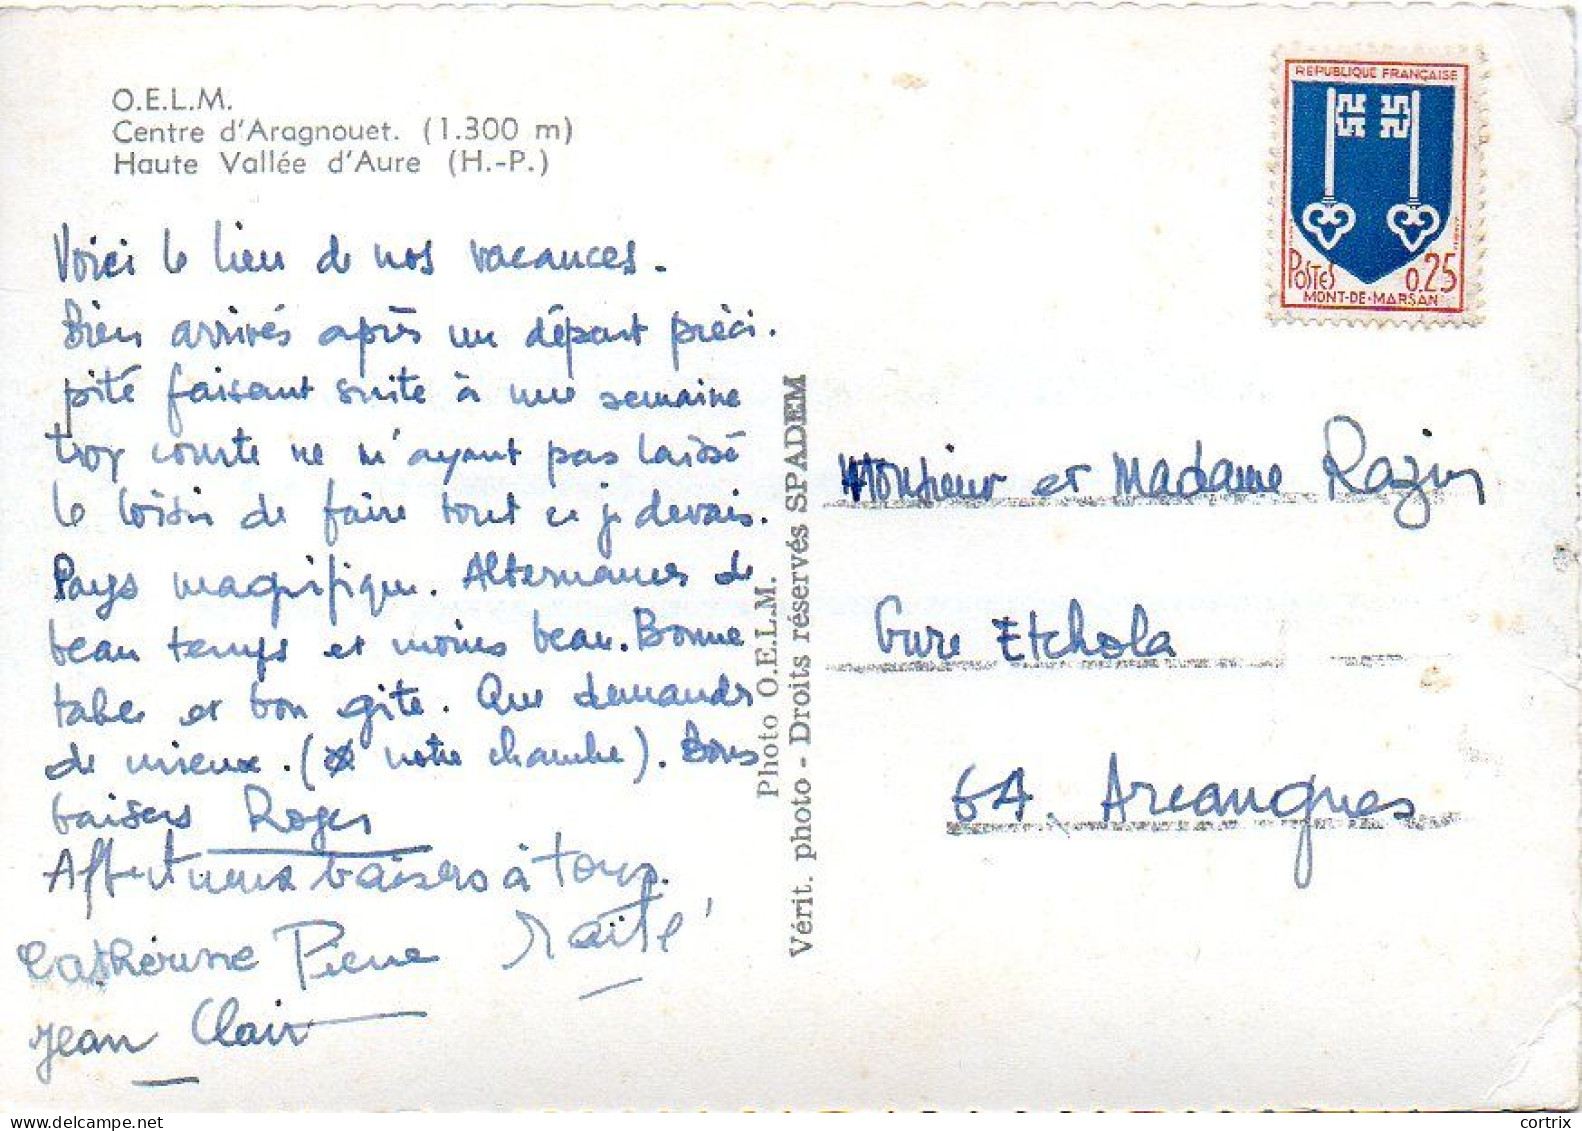 O.E.L.M.
Centre d'Aragnouet. (1.300 m)
Haute Vallée d'Aure (H.-P.)
Voici le lieu de nos vacances.
Bien arrivés après un départ préci-
pité faisant suite à une semaine
trop courte ne m'ayant pas laissé
le loisir de faire tout ce q je devais.
Pays magnifique. Alternances de
beau temps et moins beau. Bonne
table et bon gîte. Que demander
de mieux. (notre chambre). Bons
baisers Roger
Affectueux baisers à tous.
Catherine Pierre Maïté
Jean Clair
Photo O.E.L.M.
Vérit. photo - Droits réservés SPADEM
REPUBLIQUE FRANÇAISE
POSTES 0.25
MONT-DE-MARSAN
Monsieur et Madame Razin
Gure Etchola
64. Arcangues
cortrix